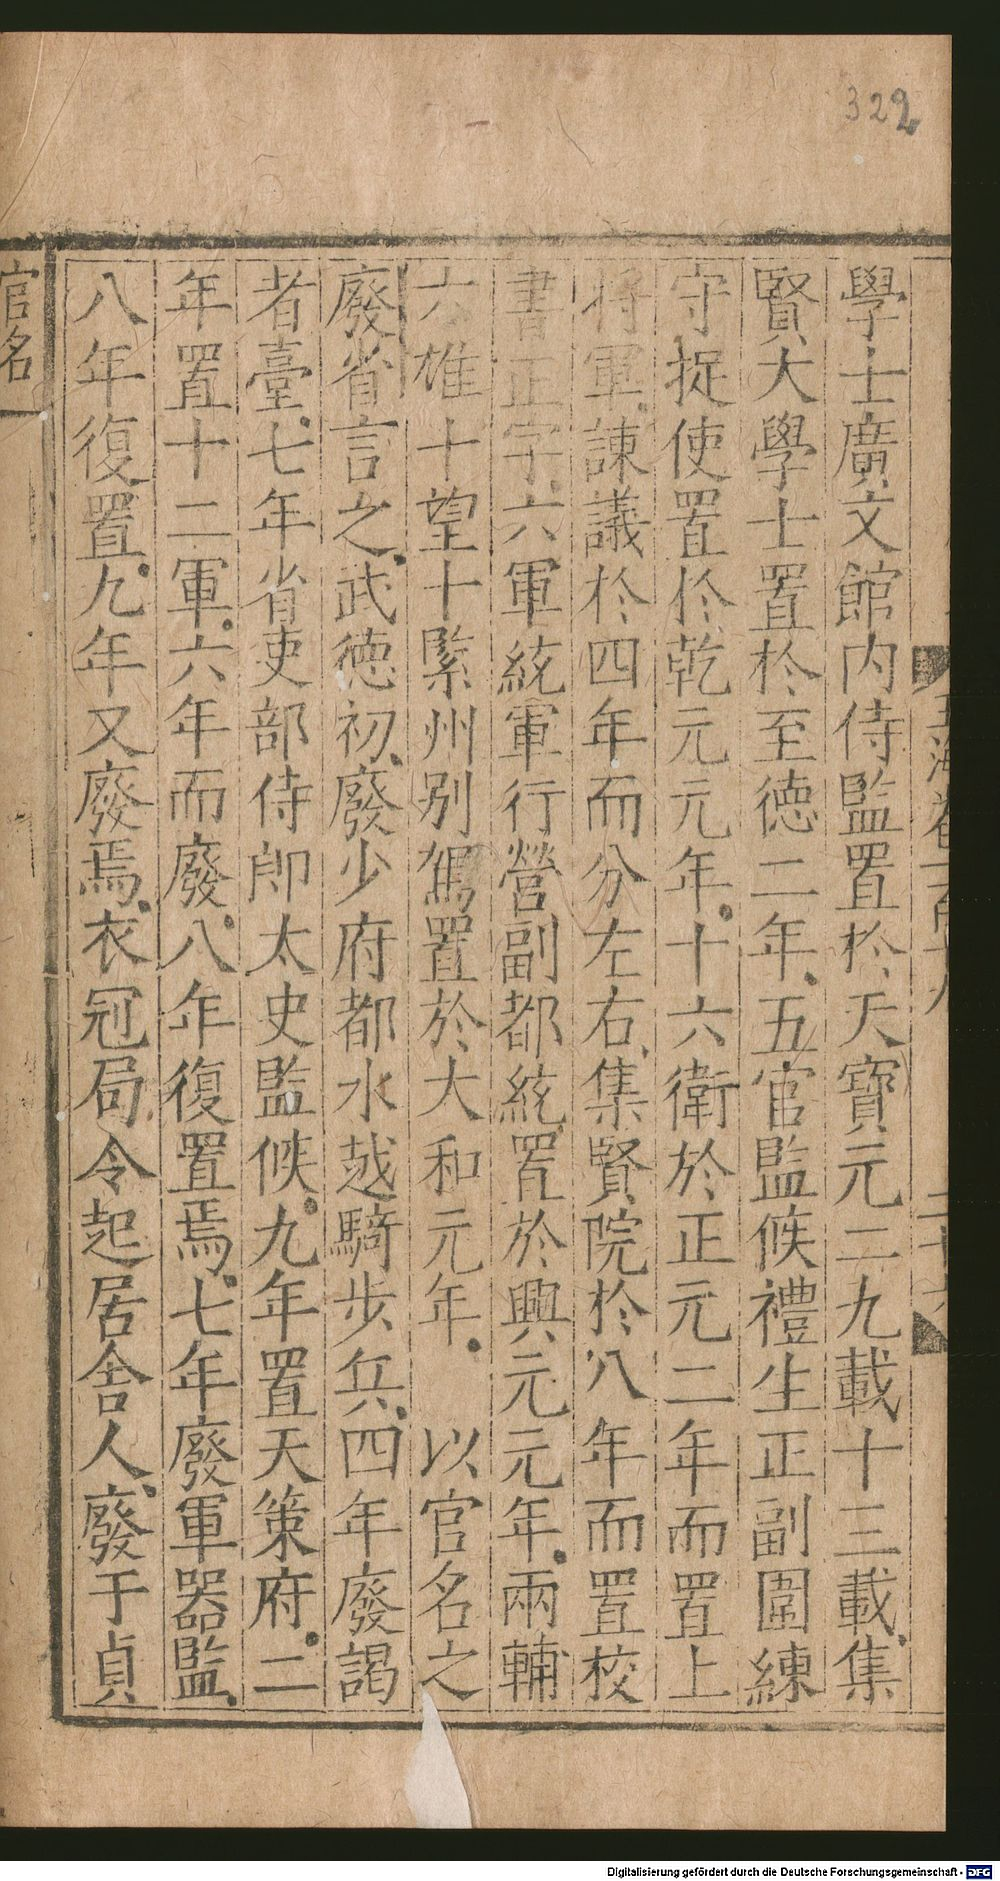 322
學士廣文館內侍監置於天寶元二九載十三載集
賢大學士置於至德二年五官監候禮生正副團練
守捉使置於乾元元年十六衛於正元二年而置上
將軍諫議於四年而分左右集賢院於八年而置校
書正字六軍統軍行營副都統置於興元元年兩輔
六雄十望十緊州別駕置於大和元年 以官名之
廢省言之武德初廢少府都水越騎步兵四年廢謁
者臺七年省吏部侍郎太史監候九年置天策府二
年置十二軍六年而廢八年復置焉七年廢軍器監
八年復置九年又廢焉衣冠局令起居舍人廢于貞
官名
Digitalisierung gefördert durch die Deutsche Forschungsgemeinschaft - DFG